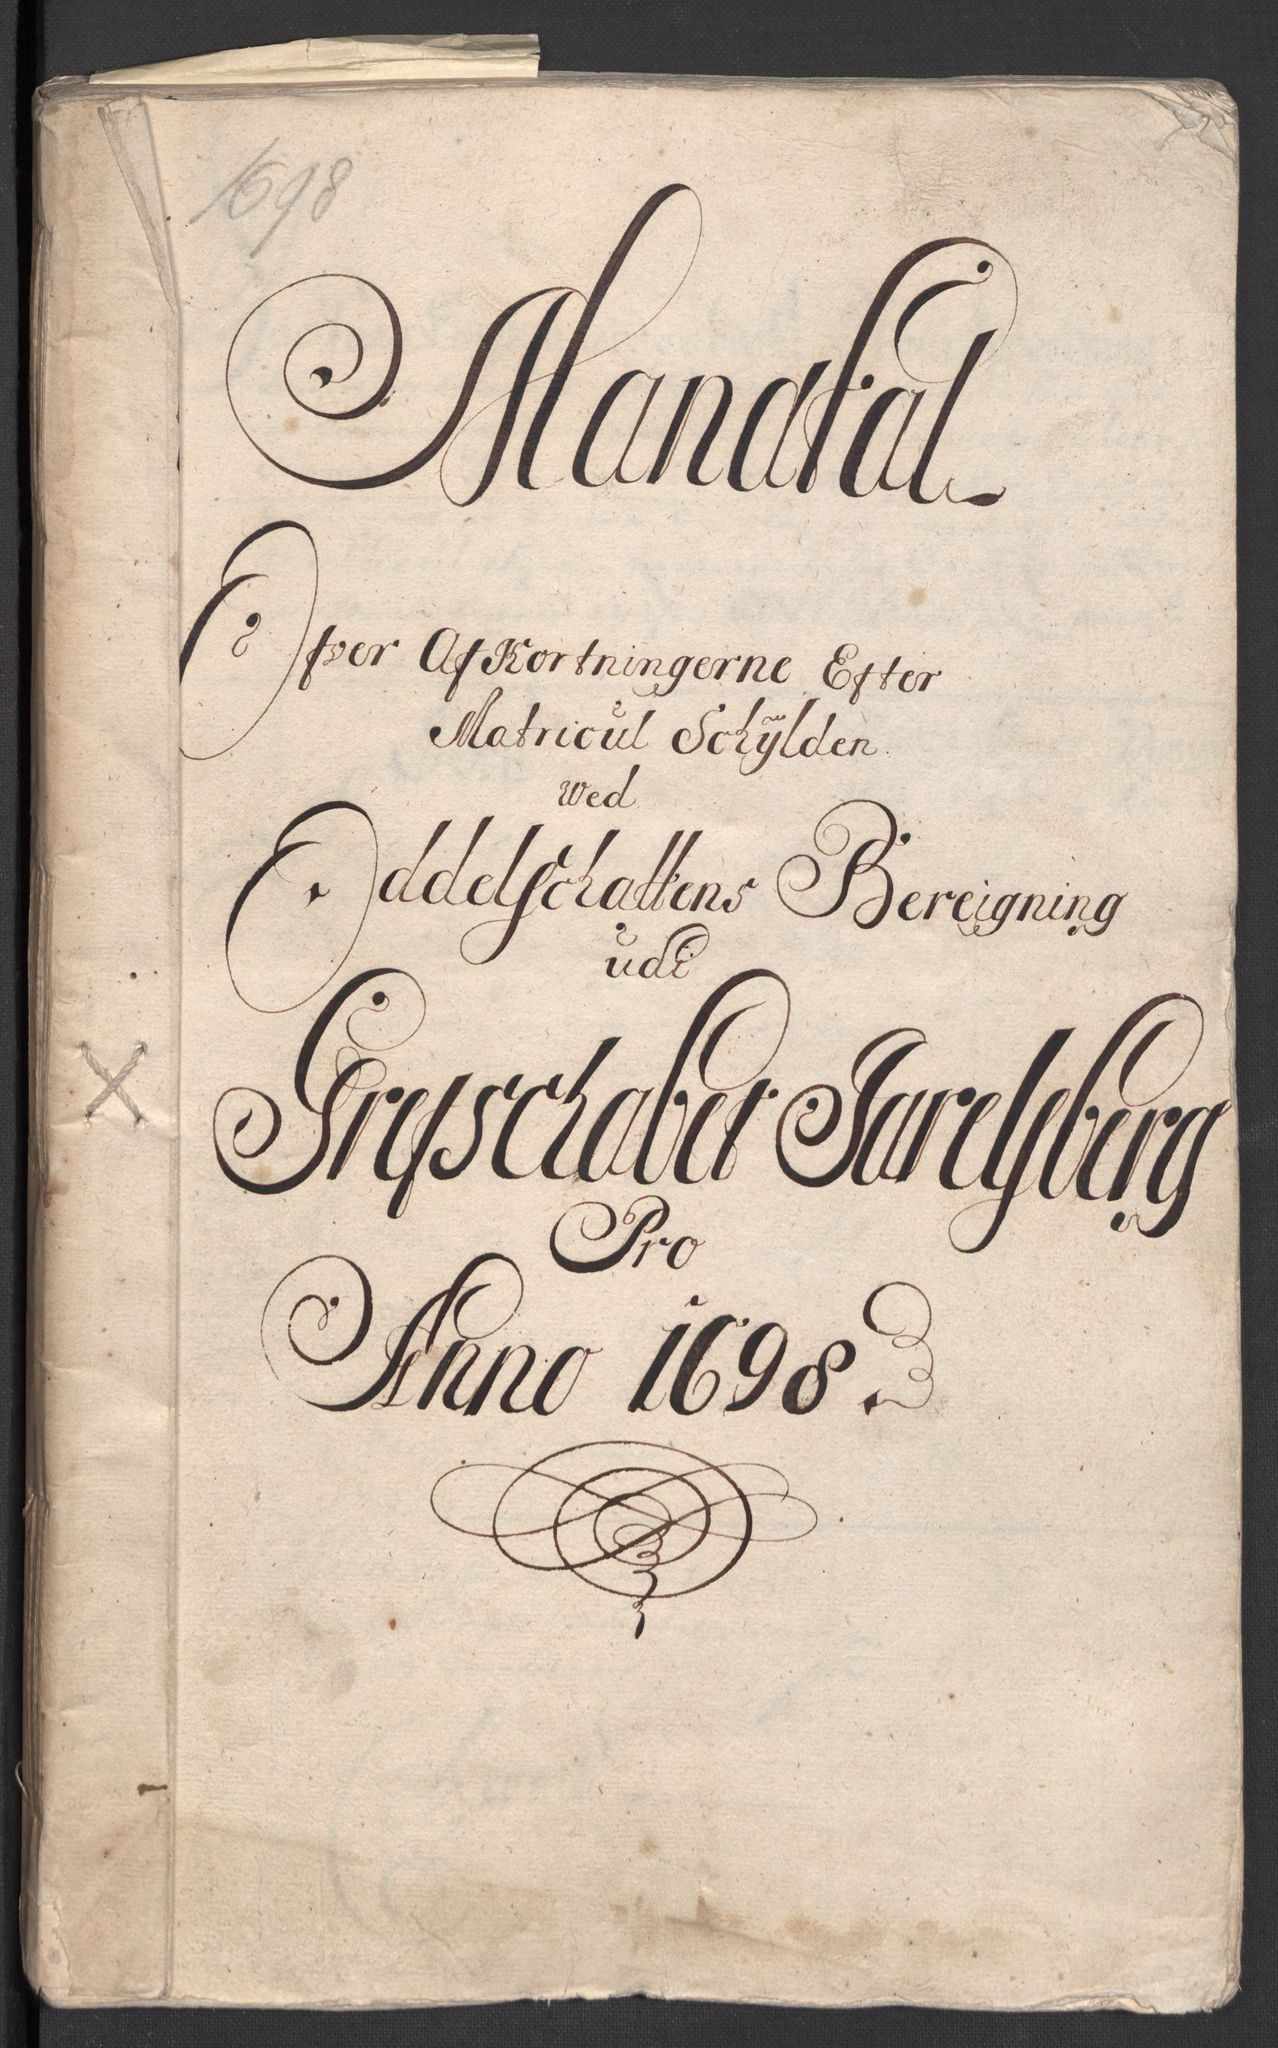 1698
Mandtal
Ofver Afkortningerne Efter
Matricul Schÿlden
Wed
Oddelschattens Bereigning
udi
Grefschabet Jarelsberg
Pro
Anno 1698